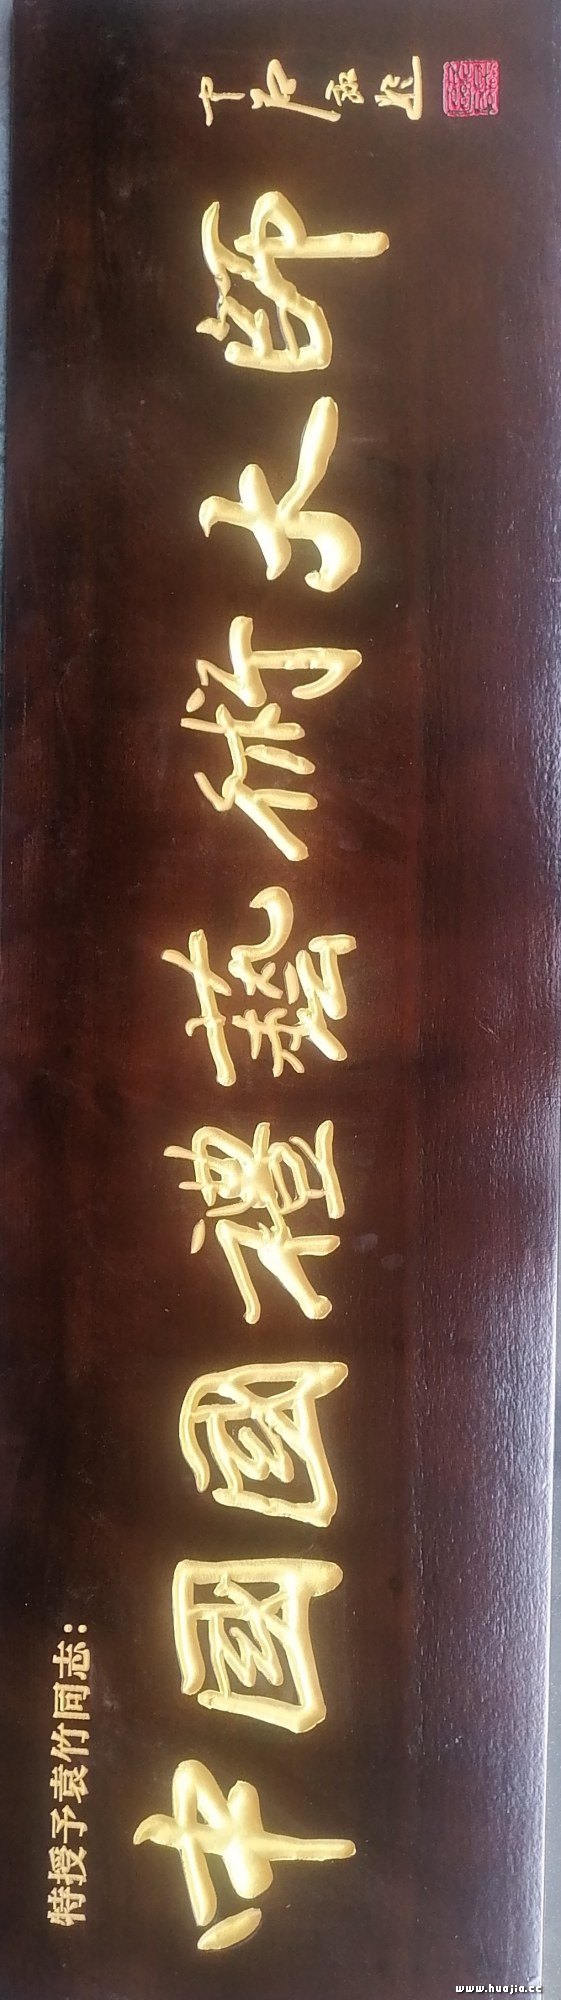 特授予袁竹同志：
中國國禮藝術大師
www.huajia.cc